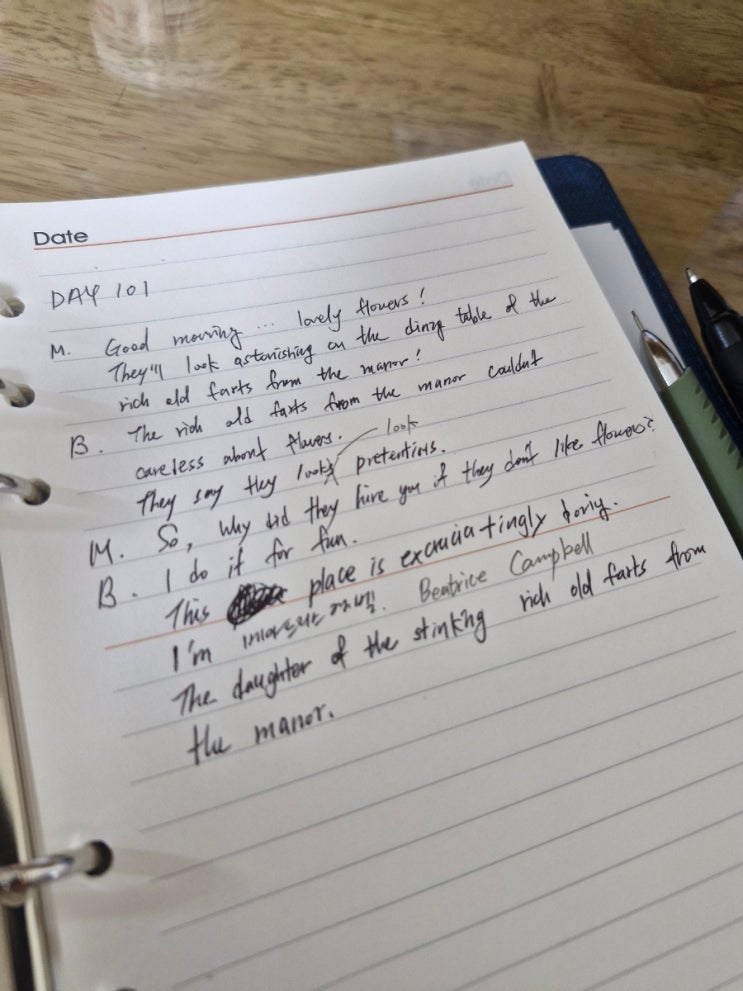 Date
DAY 101
M. Good morning... lovely flowers!
They'll look astonishing on the dinig table of the
rich old farts from the manor!
B. The rich old farts from the manor couldn't
careless about flowers.
look
They say they looks pretentius.
M. So, why did they hire you if they don't like flowers?
B. I do it for fun.
This place is excruciatingly boriy.
I'm Beatrice Campbell
The daughter of the stinking rich old farts from
the manor.